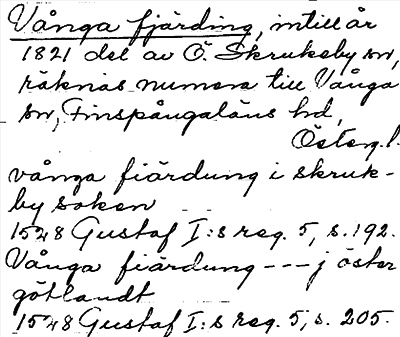 Vånga fjärding, intill år
1821 del av Ö. Skrukeby sn,
räknas numera till Vånga
sn, Finspångaläns hd,
Österg. l.
vånga fiärdung i skruk-
by soken
1548 Gustaf I:s reg. 5, s. 192.
Vånga fiärdung --- j öster
götlandt
1548 Gustaf I:s reg. 5, s. 205.